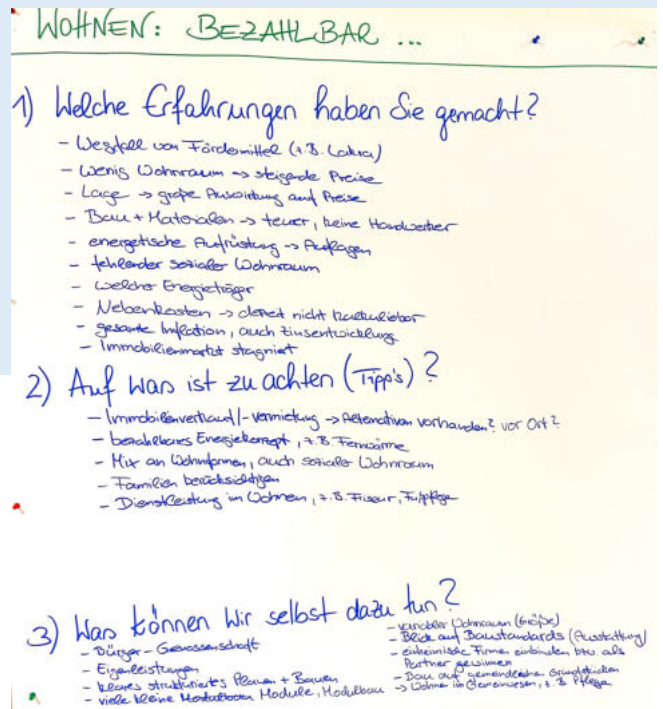 WOHNEN: BEZAHLBAR ...
1) Welche Erfahrungen haben Sie gemacht?
- Wegfall von Fördermittel (z.B. Lakra)
- Wenig Wohnraum → steigende Preise
- Lage → große Auswirkung auf Preise
- Bau + Materialen → teuer, keine Handwerker
- energetische Aufrüstung → Auflagen
- fehlender sozialer Wohnraum
- welcher Energieträger
- Nebenkosten → derzeit nicht kalkulierbar
- gesamte Inflation, auch Zinsentwicklung
- Immobilienmarkt stagniert
2) Auf was ist zu achten (Tipp's)?
- Immobilienverkauf/-vermietung → Alternativen vorhanden? vor Ort?
- bezahlbares Energiekonzept, z.B. Fernwärme
- Mix an Wohnformen, auch sozialer Wohnraum
- Familien berücksichtigen
- Dienstleistung im Wohnen, z.B. Friseur, Fußpflege
3) Was können wir selbst dazu tun?
- Bürger-Genossenschaft
- Eigenleistungen
- klares strukturiertes Planen + Bauen
- viele kleine Module, Modulbau
- variabler Wohnraum (Größe)
- Blick auf Baustandards (Ausstattung)
- einheimische Firmen einbinden bzw. als
Partner gewinnen
- Bau auf gemeindlichen Grundstücken
→ Wohnen im Generwesen, z.B. Pflege